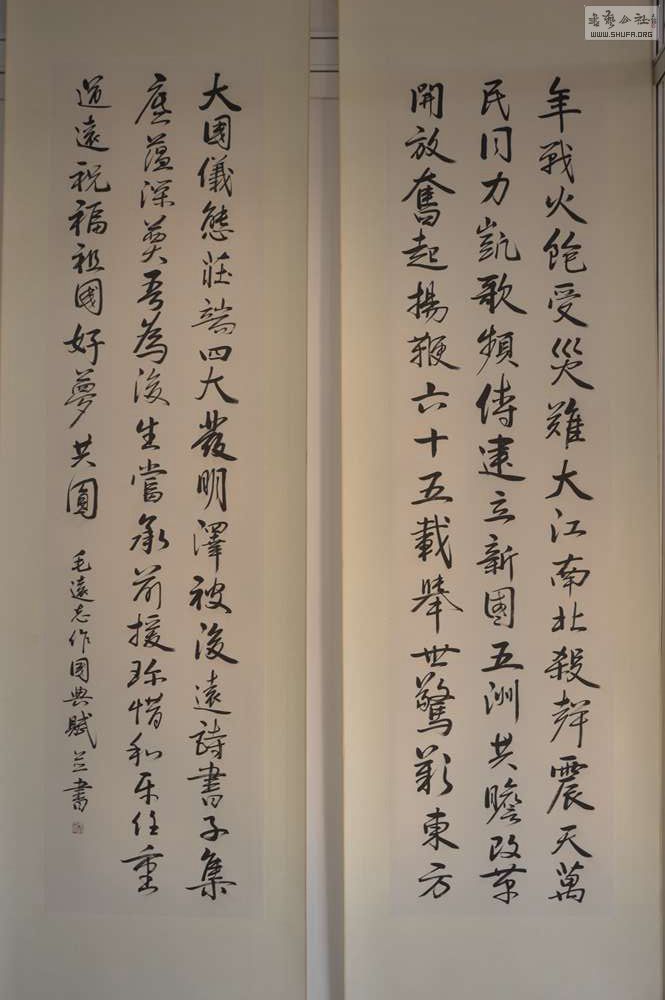 年戰火飽受災難大江南北殺聲震天萬
民同力凱歌頻傳建立新國五洲共瞻改革
開放奮起揚鞭六十五載舉世驚歎東方
大國儀態莊端四大發明澤被後遠詩書子集
底蘊深奠吾為後生當承前援珍惜和平任重
道遠祝福祖國好夢共圓
毛遠志作國典賦 書
WWW.SHUFA.ORG